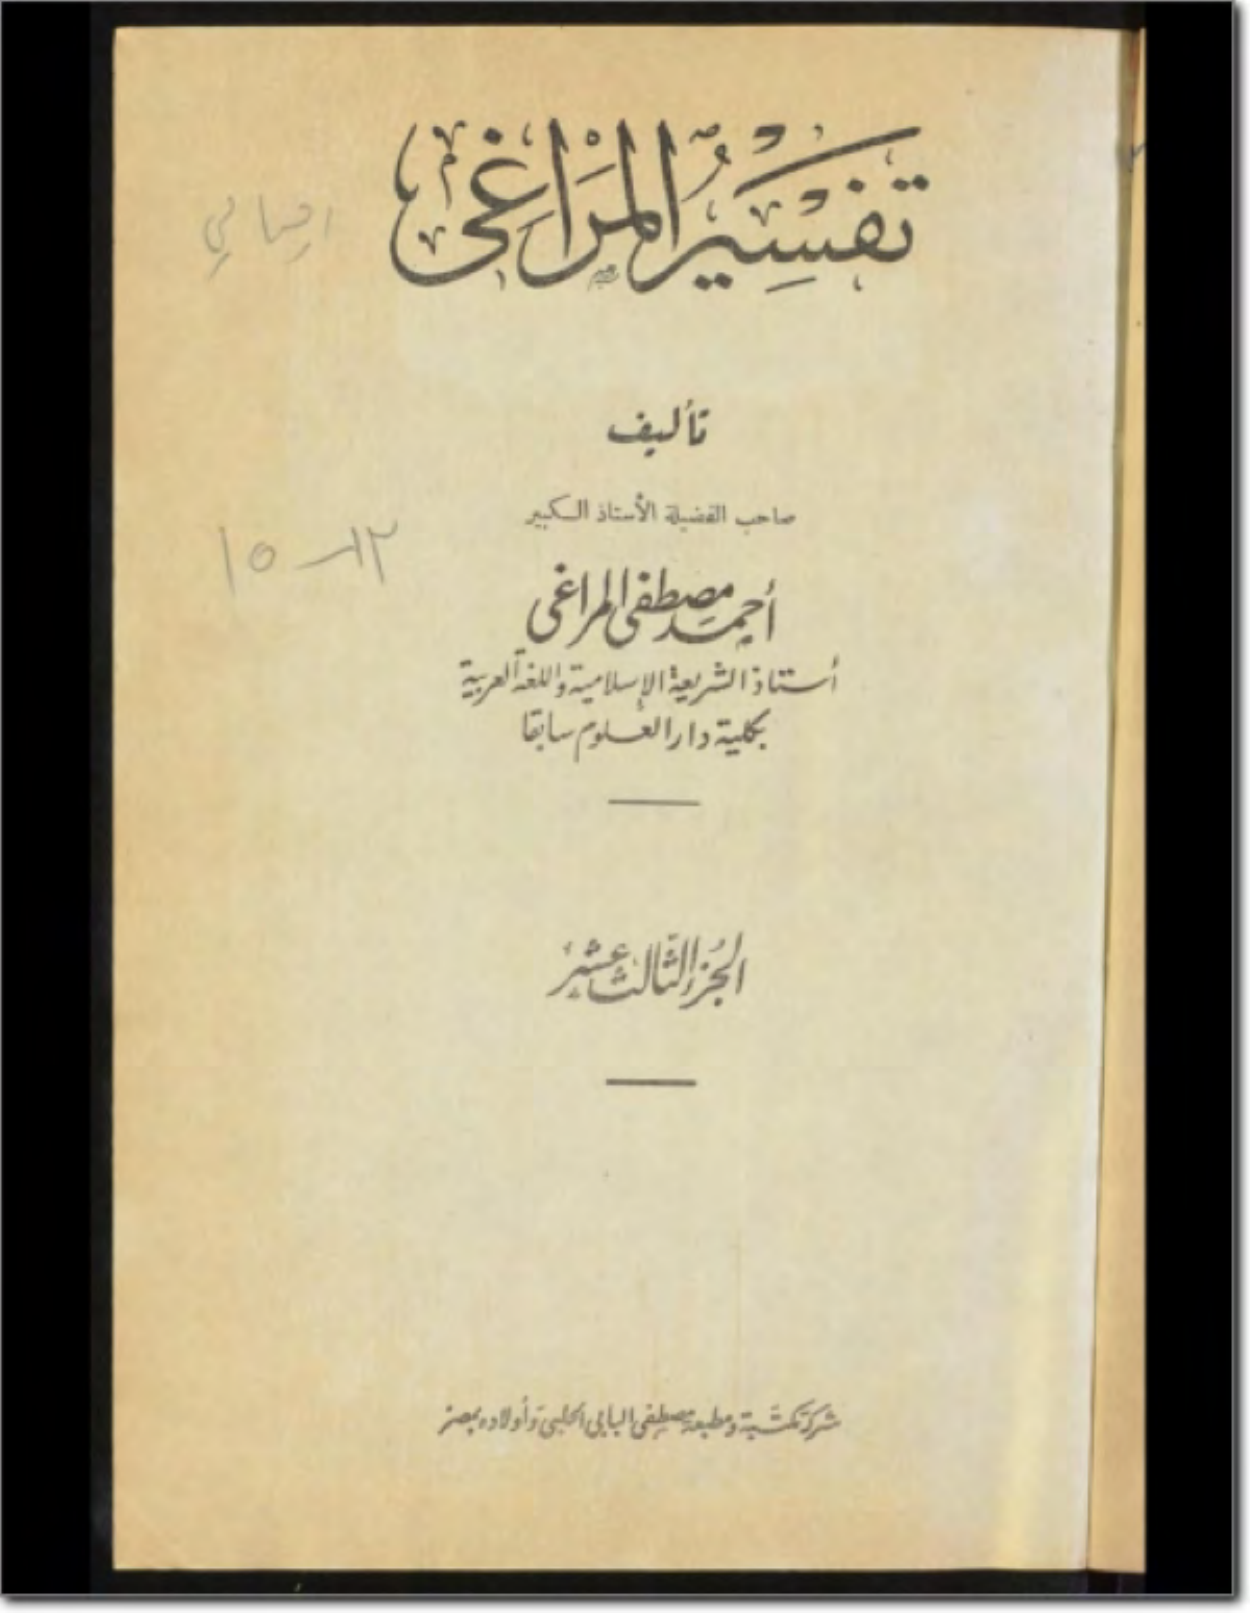 تفسير المراغى
تأليف
صاحب الفضيلة الأستاذ الكبير
أحمد مصطفى المراغى
أستاذ الشريعة الإسلامية واللغة العربية
بكلية دار العلوم سابقا
١٥ — ١٣
الجزء الثالث عشر
شركة مكتبة ومطبعة مصطفى البابى الحلبى وأولاده بمصر